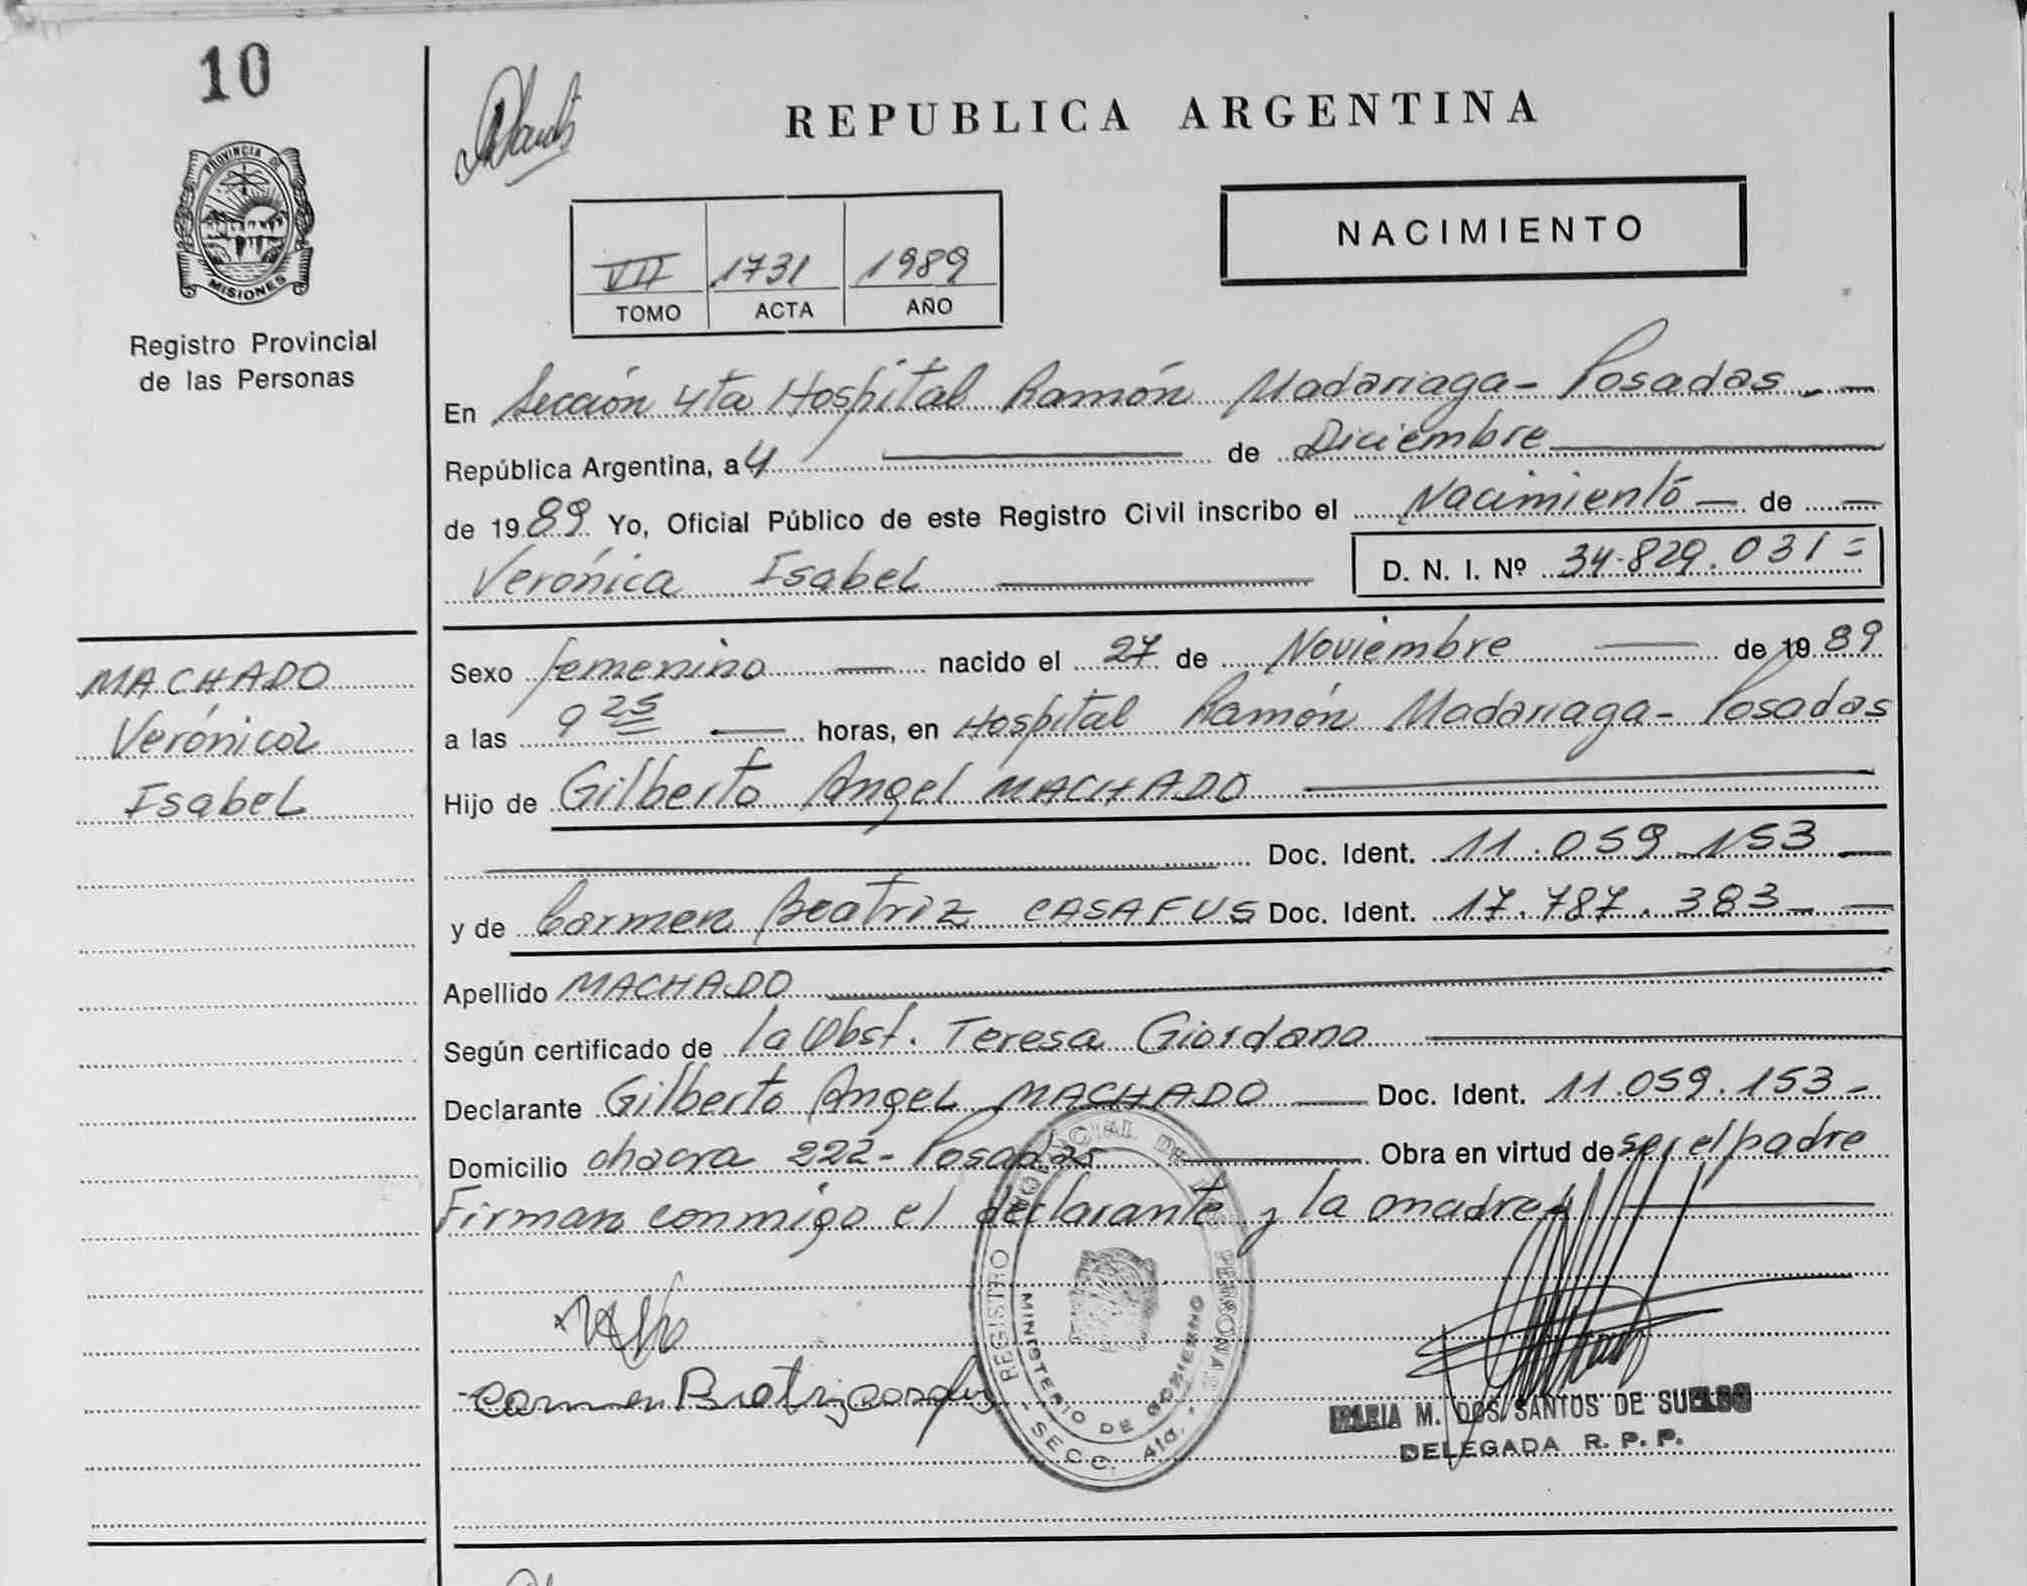 10
PROVINCIA DE
MISIONES
Registro Provincial
de las Personas
REPUBLICA ARGENTINA
NACIMIENTO
VII 1731 1989
TOMO ACTA AÑO
En Sección 4ta Hospital Ramón Madariaga - Posadas.-
República Argentina, a 4 de Diciembre
de 1989 Yo, Oficial Público de este Registro Civil inscribo el Nacimiento de
Verónica Isabel D. N. I. Nº 34.829.031=
MACHADO
Verónica
Isabel
Sexo femenino nacido el 27 de Noviembre de 1989
a las 9 25 horas, en Hospital Ramón Madariaga - Posadas
Hijo de Gilberto Angel MACHADO
Doc. Ident. 11.059.153
y de Carmen Beatriz CASAFUS Doc. Ident. 17.787.383
Apellido MACHADO
Según certificado de la Obst. Teresa Giordano
Declarante Gilberto Angel MACHADO Doc. Ident. 11.059.153-
Domicilio chacra 222- Posadas Obra en virtud de ser el padre
Firman conmigo el declarante y la madre
REGISTRO PROVINCIAL DE LAS PERSONAS
MINISTERIO DE GOBIERNO
- SECC. 4ta. -
Carmen Beatriz Casafus
MARIA M. DOS SANTOS DE SUELDO
DELEGADA R. P. P.